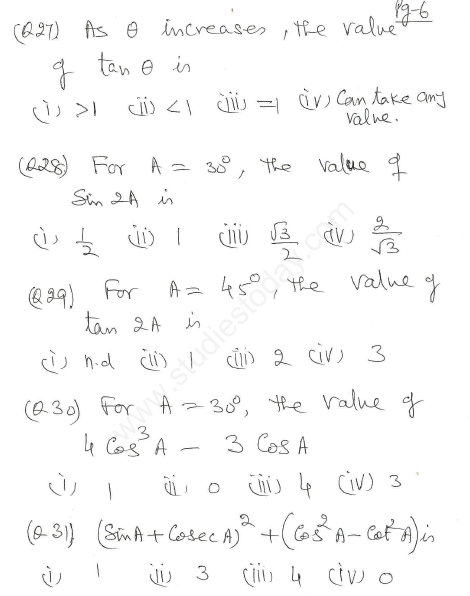 Pg-6
(Q27) As θ increases, the value
of tan θ is
(i) >1 (ii) <1 (iii) =1 (iv) Can take any value.
(Q28) For A = 30°, the value of
Sin 2A is
(i) 1/2 (ii) 1 (iii) √3/2 (iv) 2/√3
(Q29) For A = 45°, the value of
tan 2A is
(i) n.d (ii) 1 (iii) 2 (iv) 3
(Q30) For A = 30°, the value of
4 Cos³A - 3 Cos A
(i) 1 (ii) 0 (iii) 4 (iv) 3
(Q31) (Sin A + Cosec A)² + (Cos²A - Cot²A) is
(i) 1 (ii) 3 (iii) 4 (iv) 0
www.studiestoday.com